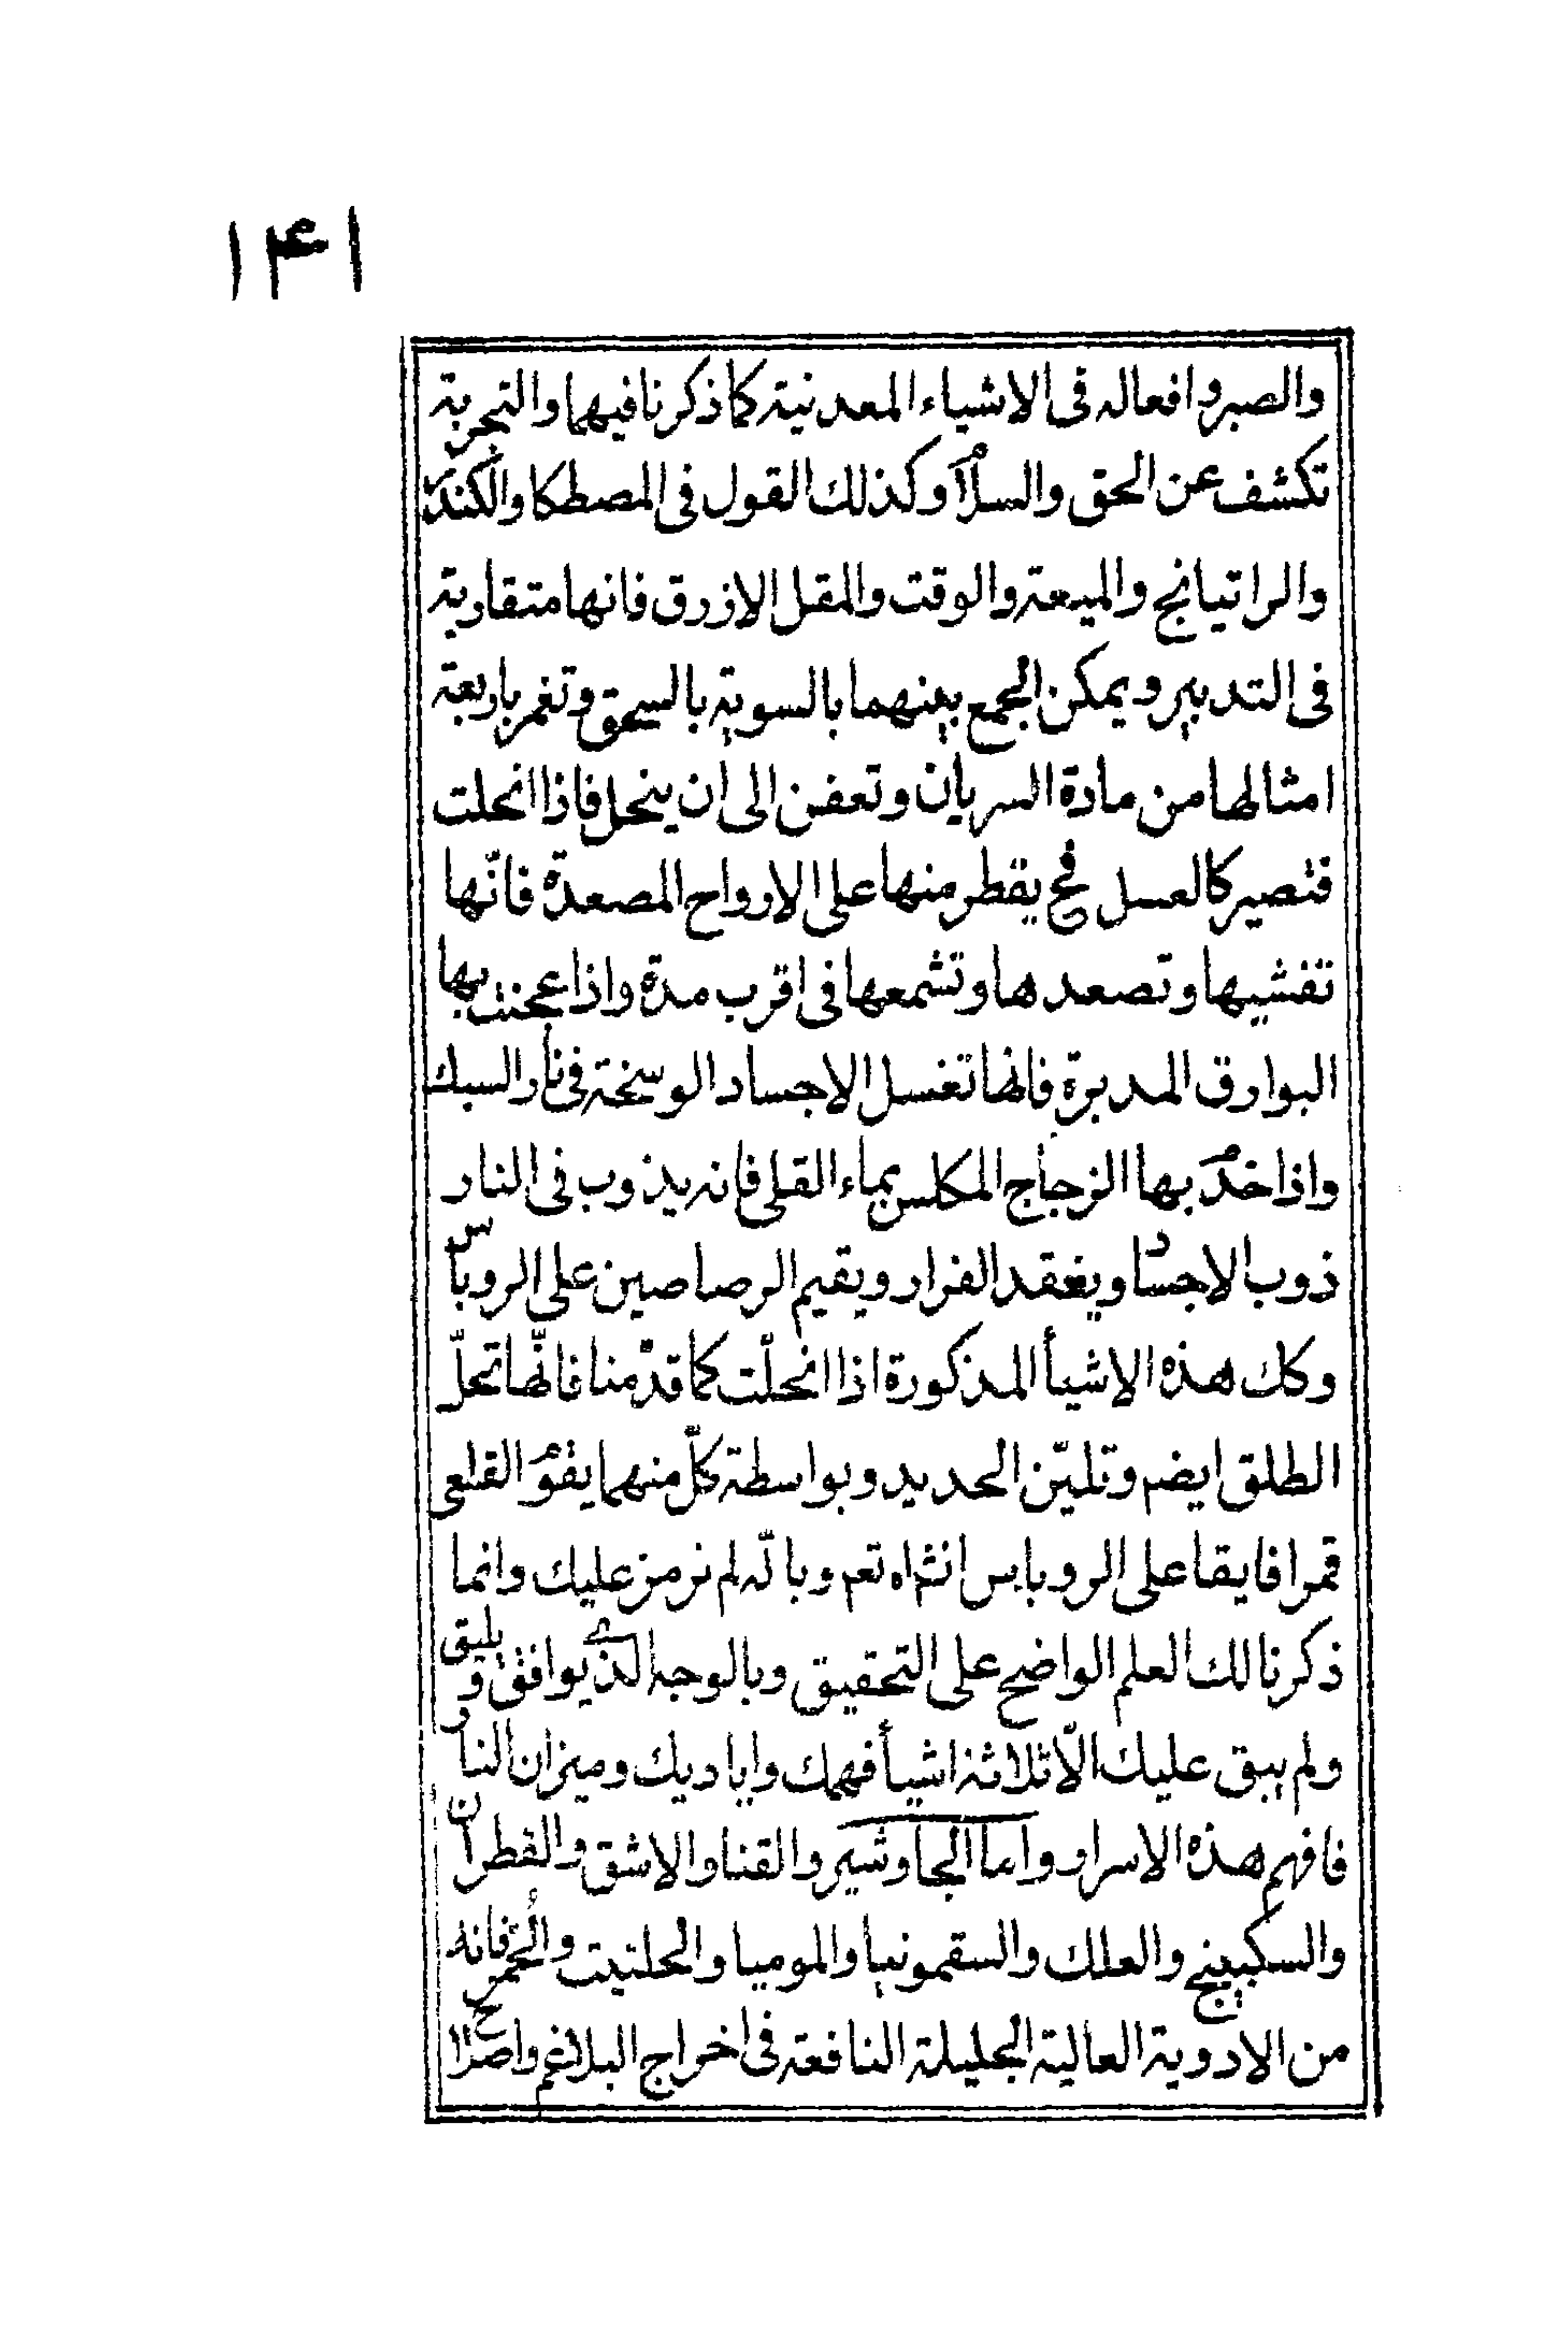 ١۴١
والصبر وافعاله فى الاشياء المعدنية كما ذكرنا فيهما والتجربة
تكشف عن الحق والسلام وكذلك القول فى المصطكا والكندر
والراتيانج والميعة والوقت والمقل الازرق فانها متقاربة
فى التدبير ويمكن الجمع بينهما بالسوية بالسحق وتغمر باربعة
امثالها من مادة السريان وتعفن الى ان ينحل فاذا انحلت
فتصير كالعسل فح يقطر منها على الارواح المصعدة فانّها
تفشيها وتصعدها وتشمعها فى اقرب مدة واذا عجنت بها
البوارق المدبرة فانها تغسل الاجساد الوسخة فى نار السبك
واذا خدم بها الزجاج المكلس بماء القلى فانه يذوب فى النار
ذوب الاجساد ويعقد الفرار ويقيم الرصاصين على الروباس
وكل هذه الاشيأ المذكورة اذا انحلّت كما قدّمنا فانّها تحلّ
الطلق ايضم وتليّن الحديد وبواسطة كلّ منهما يقوم القلعى
قمرا فايقا على الروباس انشاه تعم وبالله لم نرمز عليك وانما
ذكرنا لك العلم الواضح على التحقيق وبالوجه الذى يوافق ويليق
ولم يبق عليك الّا ثلاثة اشيأ فهمك واياديك وميزان النار
فافهم هذه الاسرار واما الجاوشير والقنا والاشق والقطران
والسكبينج والعلك والسقمونيا والموميا والحلتيت والخمر فانه
من الادوية العالية الجليلة النافعة فى اخراج البلاغم واصلاح